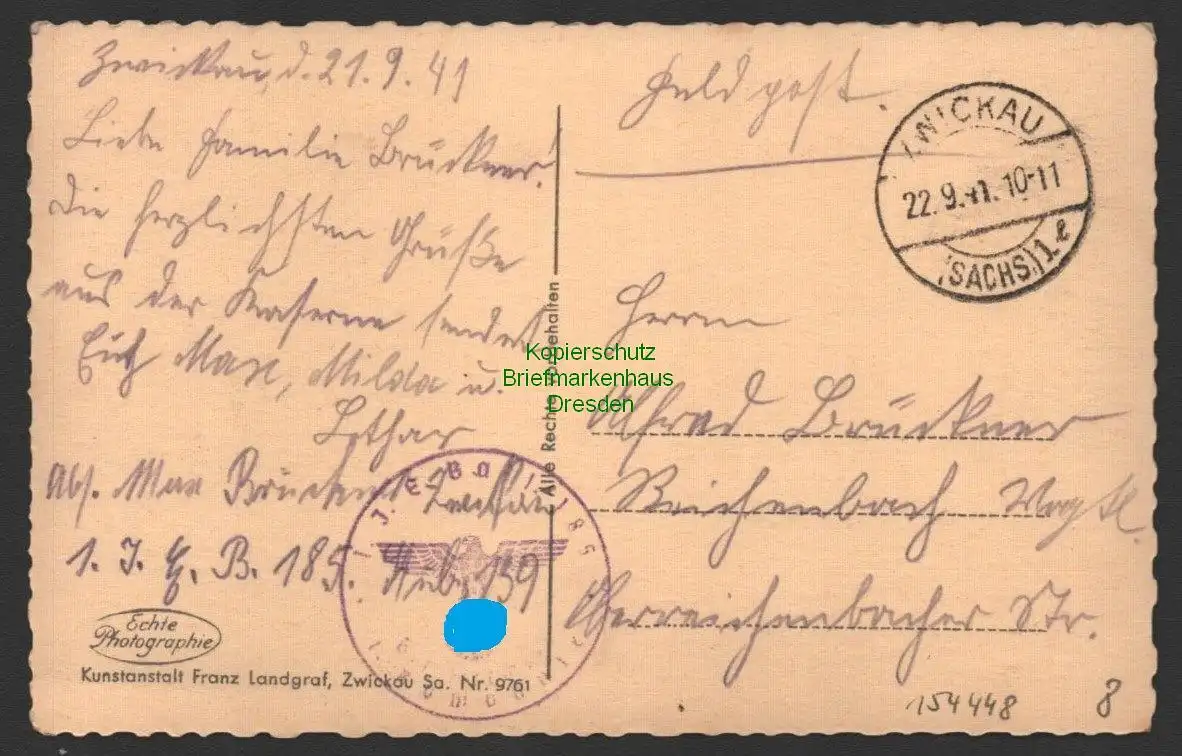 Zwickau, d. 21.9.41
Liebe Familie Brückner!
Die herzlichsten Grüße
aus der Kaserne sendet
Euch Max, Milda u.
Lothar
Abs. Max Brückner Zwickau
1. J. E. B. 185. Stube 139
Echte
Photographie
Kunstanstalt Franz Landgraf, Zwickau Sa. Nr. 9761
Alle Rechte vorbehalten
Kopierschutz
Briefmarkenhaus
Dresden
Feldpost.
ZWICKAU
22.9.41.10-11
(SACHS) 1 e
Herrn
Alfred Brückner
Reichenbach Vogtl.
Oberreichenbacher Str.
154448
8